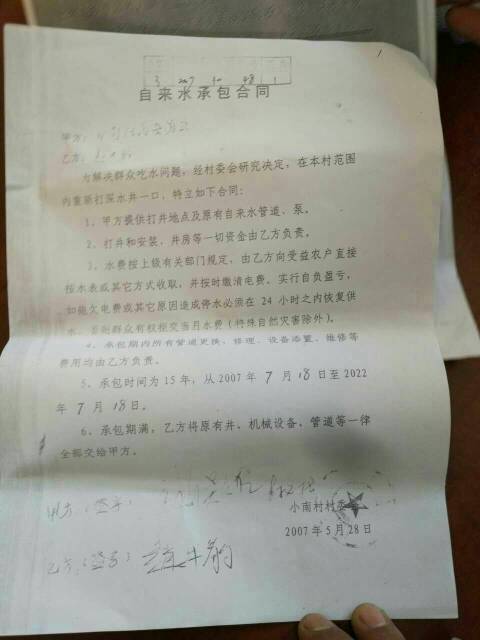 1
3 10 1
自来水承包合同
甲方：
乙方：
为解决群众吃水问题，经村委会研究决定，在本村范围
内重新打深水井一口，特立如下合同：
1、甲方提供打井地点及原有自来水管道、泵。
2、打井和安装、井房等一切资金由乙方负责。
3、水费按上级有关部门规定，由乙方向受益农户直接
按水表或其它方式收取，并按时缴清电费。实行自负盈亏，
如拖欠电费或其它原因造成停水必须在 24 小时之内恢复供
水，否则群众有权拒交当月水费（特殊自然灾害除外）。
4、承包期内所有管道更换、修理、设备添置、维修等
费用均由乙方负责。
5、承包时间为 15 年，从 2007 年 7 月 18 日至 2022
年 7 月 18 日。
6、承包期满，乙方将原有井、机械设备、管道等一律
全部交给甲方。
甲方（签字）
小南村村委会
2007 年 5 月 28 日
乙方（签字）